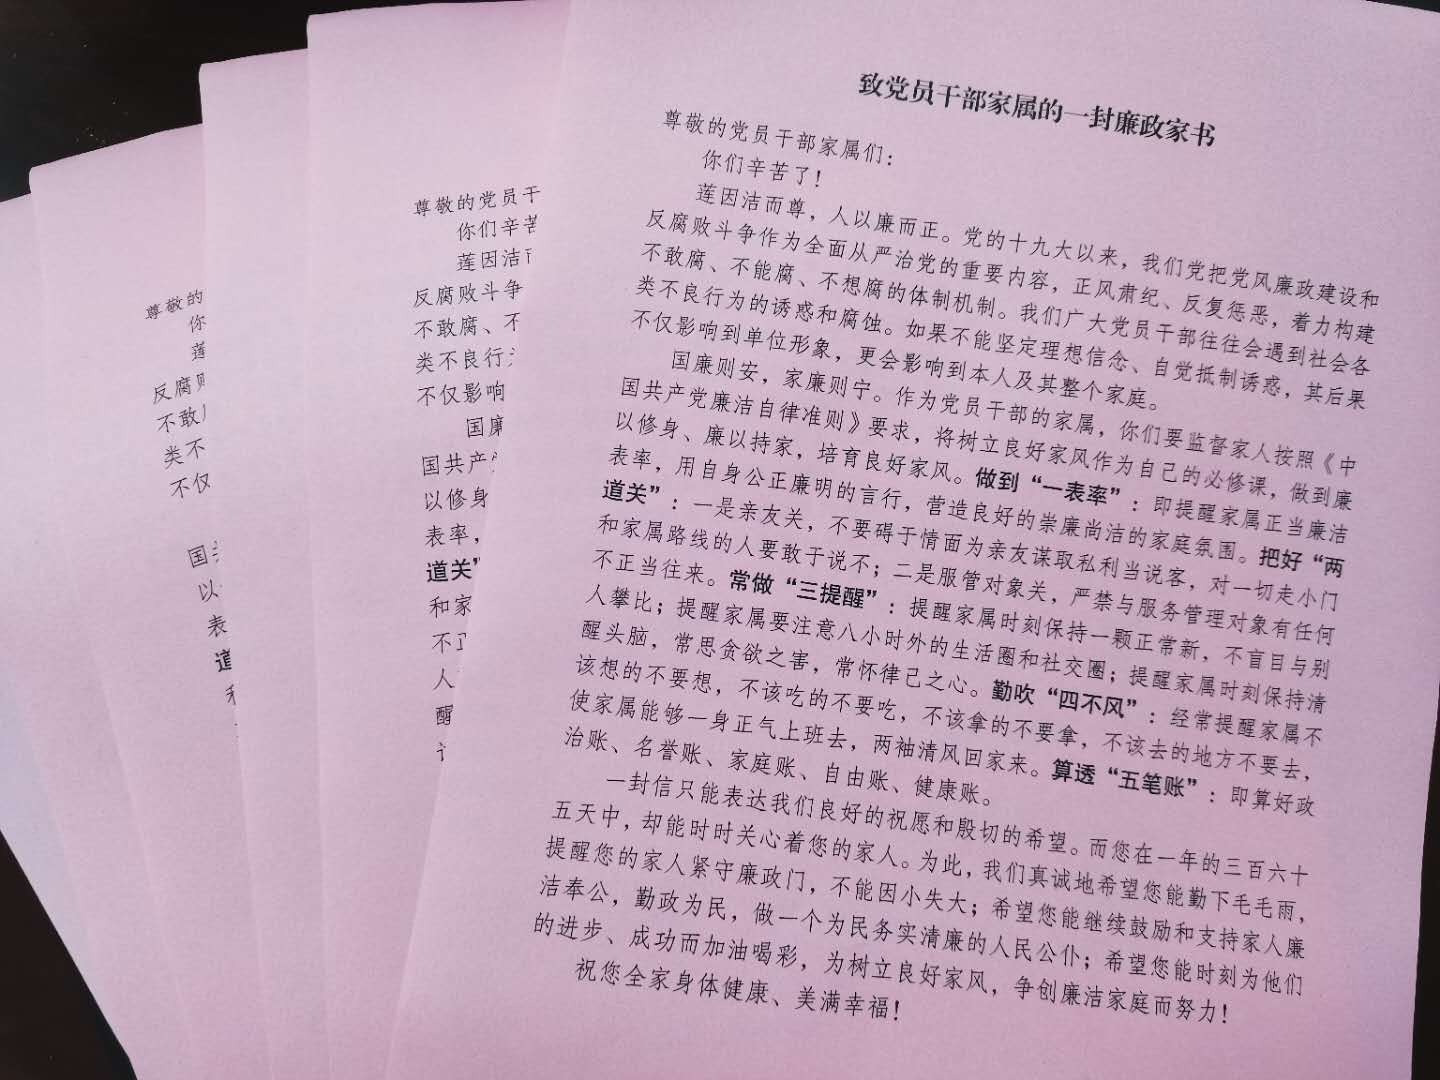 致党员干部家属的一封廉政家书
尊敬的党员干部家属们：
你们辛苦了！
莲因洁而尊，人以廉而正。党的十九大以来，我们党把党风廉政建设和
反腐败斗争作为全面从严治党的重要内容，正风肃纪、反复惩恶，着力构建
不敢腐、不能腐、不想腐的体制机制。我们广大党员干部往往会遇到社会各
类不良行为的诱惑和腐蚀。如果不能坚定理想信念、自觉抵制诱惑，其后果
不仅影响到单位形象，更会影响到本人及其整个家庭。
国廉则安，家廉则宁。作为党员干部的家属，你们要监督家人按照《中
国共产党廉洁自律准则》要求，将树立良好家风作为自己的必修课，做到廉
以修身、廉以持家，培育良好家风。做到“一表率”：即提醒家属正当廉洁
表率，用自身公正廉明的言行，营造良好的崇廉尚洁的家庭氛围。把好“两
道关”：一是亲友关，不要碍于情面为亲友谋取私利当说客，对一切走小门
和家属路线的人要敢于说不；二是服管对象关，严禁与服务管理对象有任何
不正当往来。常做“三提醒”：提醒家属时刻保持一颗正常新，不盲目与别
人攀比；提醒家属要注意八小时外的生活圈和社交圈；提醒家属时刻保持清
醒头脑，常思贪欲之害，常怀律己之心。勤吹“四不风”：经常提醒家属不
该想的不要想，不该吃的不要吃，不该拿的不要拿，不该去的地方不要去，
使家属能够一身正气上班去，两袖清风回家来。算透“五笔账”：即算好政
治账、名誉账、家庭账、自由账、健康账。
一封信只能表达我们良好的祝愿和殷切的希望。而您在一年的三百六十
五天中，却能时时关心着您的家人。为此，我们真诚地希望您能勤下毛毛雨，
提醒您的家人紧守廉政门，不能因小失大；希望您能继续鼓励和支持家人廉
洁奉公，勤政为民，做一个为民务实清廉的人民公仆；希望您能时刻为他们
的进步、成功而加油喝彩，为树立良好家风，争创廉洁家庭而努力！
祝您全家身体健康、美满幸福！
尊敬的党员干
你们辛苦
莲因洁而
反腐败斗争
不敢腐、不
类不良行
不仅影响
国廉
国共产
以修身
表率，
道关”
和家
不正
人
醒
尊敬的
你
莲
反腐败
不敢
类不
不仅
国
以
表
道